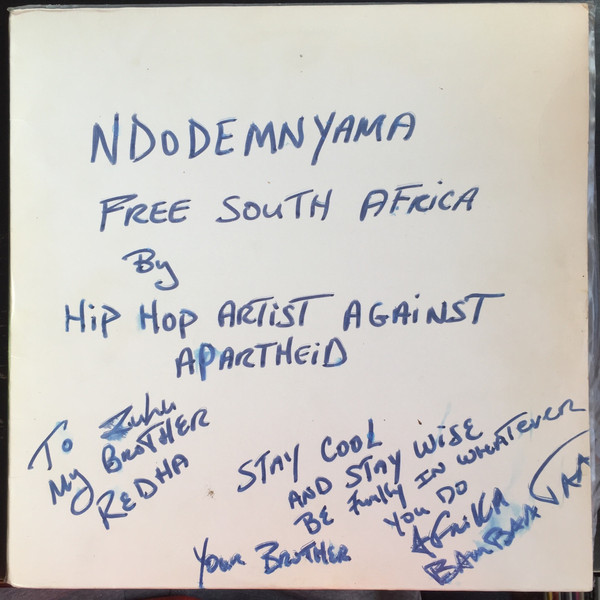 NDODEMNYAMA
FREE SOUTH AFRICA
By
HIP HOP ARTIST AGAINST
APARTHEID
TO Zulu
My BROTHER
REDHA
STAY COOL
AND STAY WISE
BE Funky IN WHATEVER
YOU DO
Your BROTHER
AFRIKA
BAMBAATAA